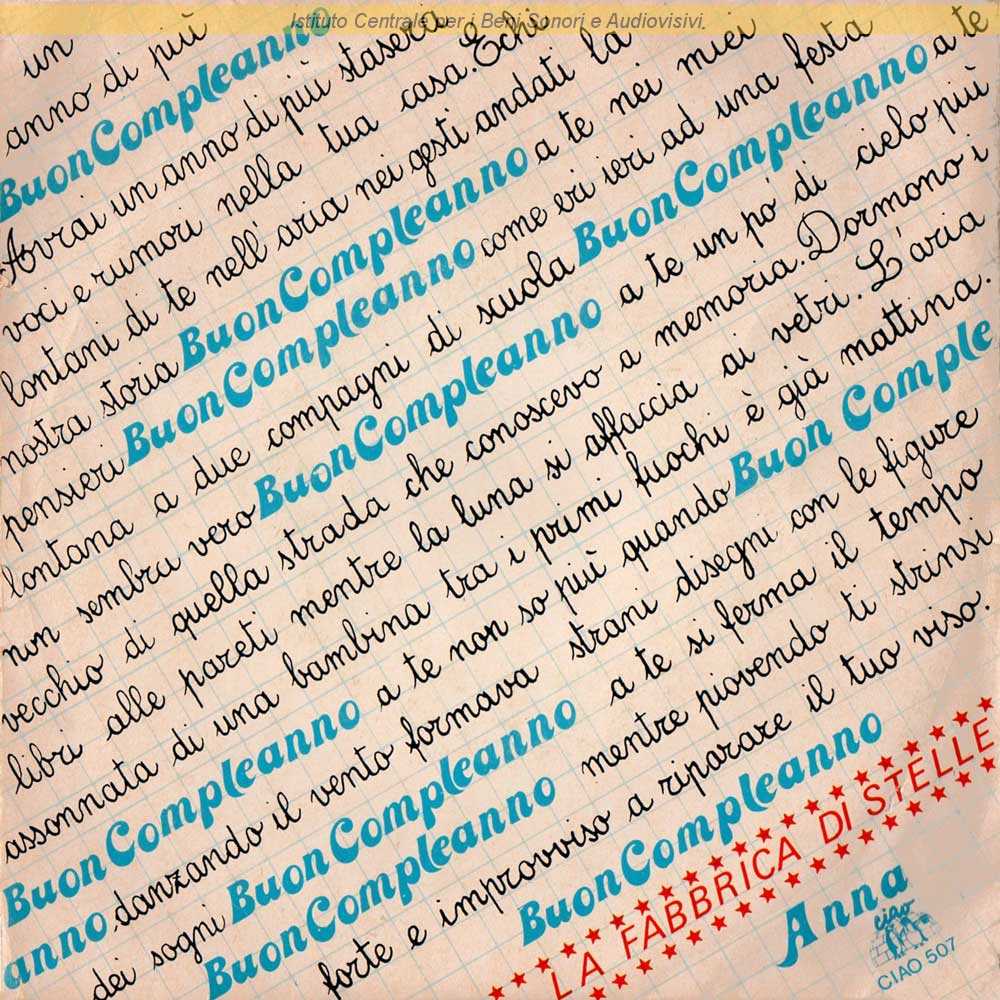 Istituto Centrale per i Beni Sonori e Audiovisivi.
un
anno di più
BuonCompleanno
Avrai un anno di più stasera
voci e rumori nella tua casa. Echi
lontani di te nell'aria nei gesti andati la
nostra storia BuonCompleanno a te nei miei
pensieri BuonCompleanno come eri ieri ad una festa
lontana a due compagni di scuola BuonCompleanno a te
non sembra vero BuonCompleanno a te un po' di cielo più
vecchio di quella strada che conoscevo a memoria. Dormono i
libri alle pareti mentre la luna si affaccia ai vetri. L'aria
assonnata di una bambina tra i primi fuochi è già mattina.
BuonCompleanno a te non so più quando Buon Comple
anno danzando il vento formava strani disegni con le figure
dei sogni BuonCompleanno a te si ferma il tempo
BuonCompleanno mentre piovendo ti strinsi
forte e improvviso a riparare il tuo viso.
BuonCompleanno
LA FABBRICA DI STELLE
Anna
ciao
CIAO 507